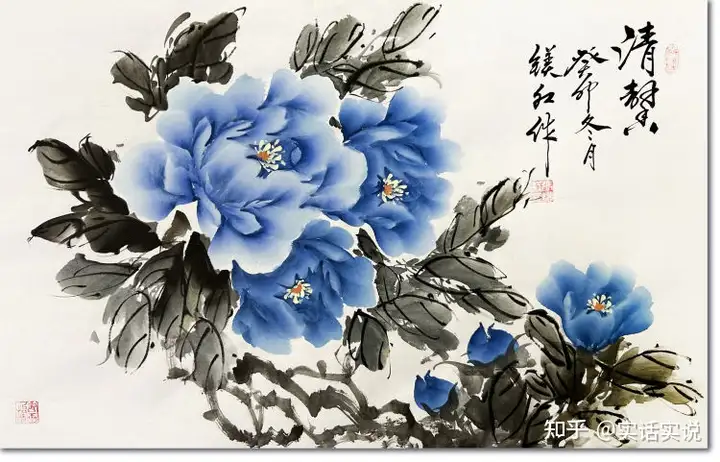 清馨
癸卯冬月
镁红作
知乎 @实话实说